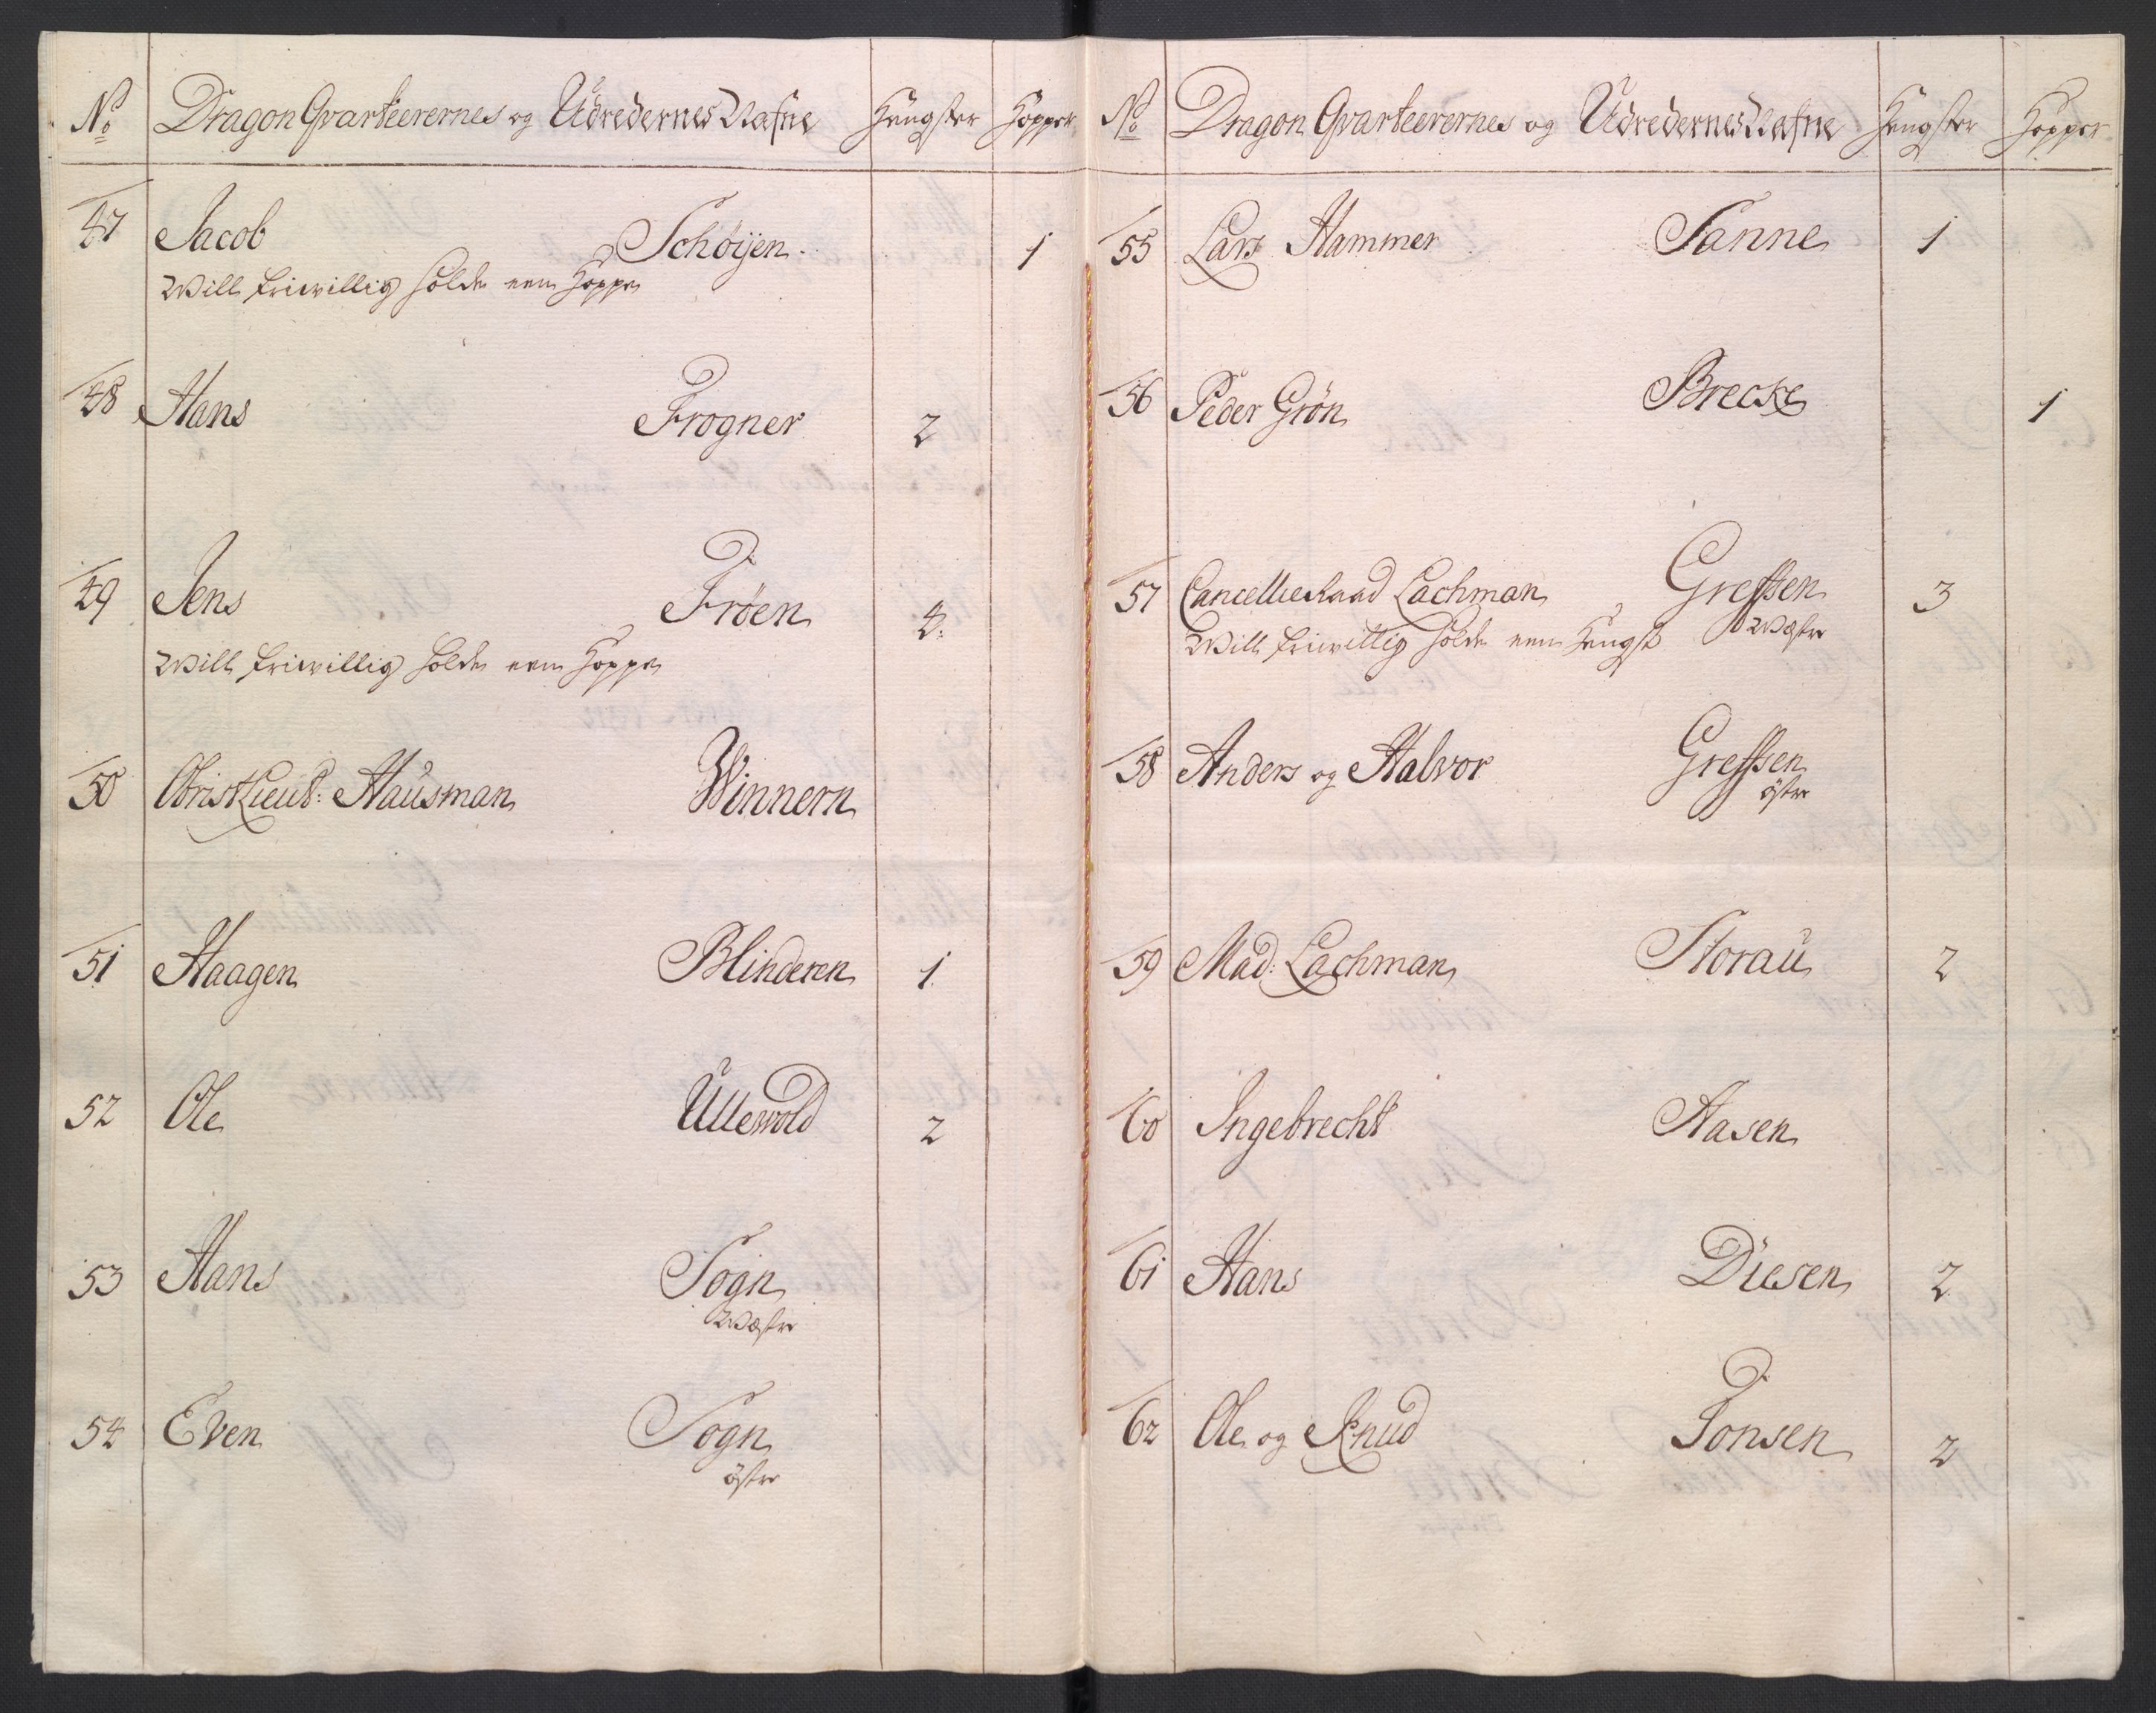 No Dragon Qvarteerernes og Udredernes Nafne Hengster Hopper
47 Jacob Schöyen 1
Will friwillig holde een Hoppe
48 Hans Frogner 2
49 Jens Fröen 4.
Will friwillig holde een Hoppe
50 Obrist Lieut: Hausman Winnern
51 Haagen Blinderen 1.
52 Ole Ullewold 2
53 Hans Sogn
Wæstre
54 Even Sogn
östre
No Dragon Qvarteerernes og Udredernes Nafne Hengster Hopper
55 Lars Hammer Sanne 1
56 Peder Grön Brecke 1
57 Cancellie Raad Lachman Grefsen 3
Will friwillig holde een Hengst Wæstre
58 Anders og Halvor Grefsen
östre
59 Mad: Lachman Storau 2
60 Ingebrecht Aasen
61 Hans Diesen 2
62 Ole og Knud Tonsen 2